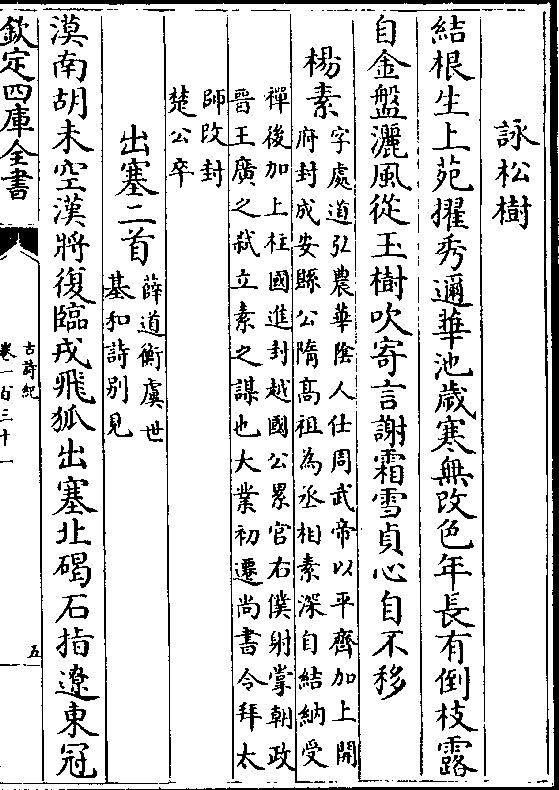 詠松樹
結根生上苑擢秀邇華池歳寒無改色年長有倒枝露
自金盤灑風從玉樹吹寄言謝霜雪貞心自不移
楊素
字處道弘農華陰人仕周武帝以平齊加上開
府封成安縣公隋高祖為丞相素深自結納受
禪後加上柱國進封越國公累官右僕射掌朝政
晉王廣之弑立素之謀也大業初遷尚書令拜太
師改封
楚公卒
出塞二首
薛道衡虞世
基和詩别見
漠南胡未空漢將復臨戎飛狐出塞北碣石指遼東冠
欽定四庫全書
古詩紀
卷一百三十一
五